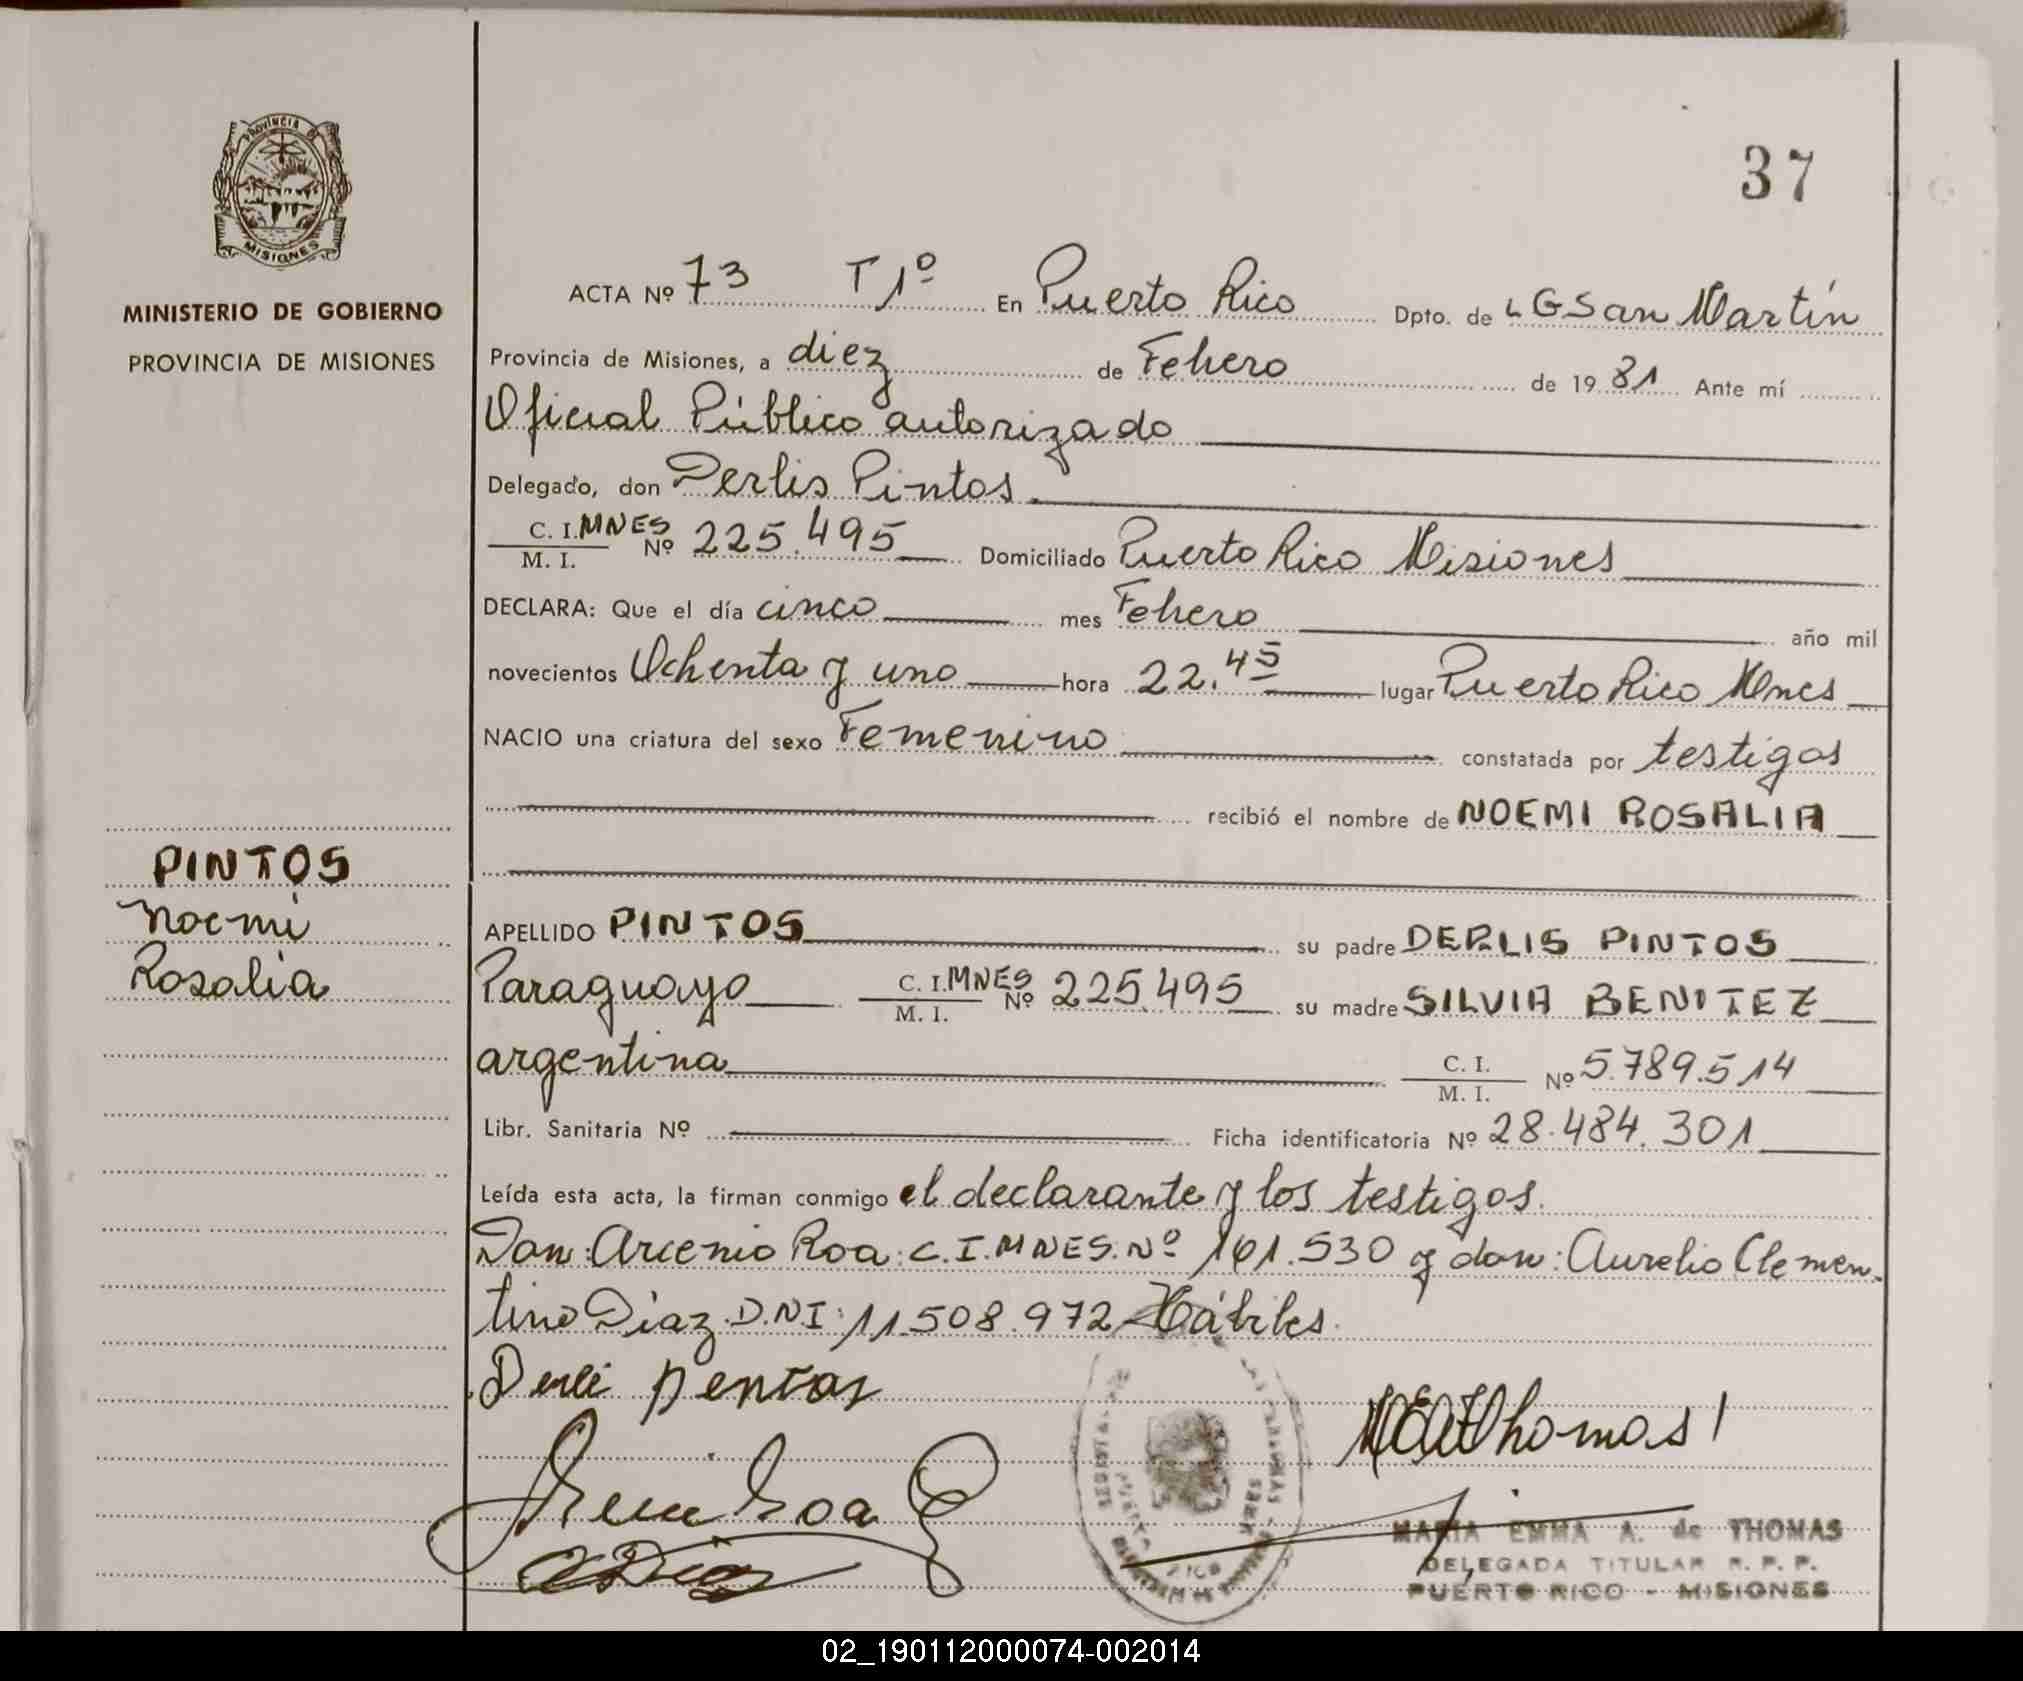 37
PROVINCIA DE
MISIONES
MINISTERIO DE GOBIERNO
PROVINCIA DE MISIONES
PINTOS
Noemi
Rosalia
ACTA Nº 73 T 1º En Puerto Rico Dpto. de LGSan Martín
Provincia de Misiones, a diez de Febrero de 19 81 Ante mí
Oficial Público autorizado
Delegado, don Derlis Pintos
C. I. MNES
M. I. Nº 225.495 Domiciliado Puerto Rico Misiones
DECLARA: Que el día cinco mes Febrero año mil
novecientos Ochenta y uno hora 22.45 lugar Puerto Rico Mnes
NACIO una criatura del sexo Femenino constatada por testigos
recibió el nombre de NOEMI ROSALIA
APELLIDO PINTOS su padre DERLIS PINTOS
Paraguayo C. I. MNES M. I. Nº 225.495 su madre SILVIA BENITEZ
argentina C. I. M. I. Nº 5.789.514
Libr. Sanitaria Nº Ficha identificatoria Nº 28.484.301
Leída esta acta, la firman conmigo el declarante y los testigos.
Don: Arcenio Roa: C.I. MNES. Nº 161.530 y don: Aurelio Clemen-
tino Díaz. D.N.I: 11.508.972 Hábiles.
Derli pentos
Roa
Diaz
MEAdThomas
MARIA EMMA A. de THOMAS
DELEGADA TITULAR R. P. P.
PUERTO RICO - MISIONES
02_190112000074-002014